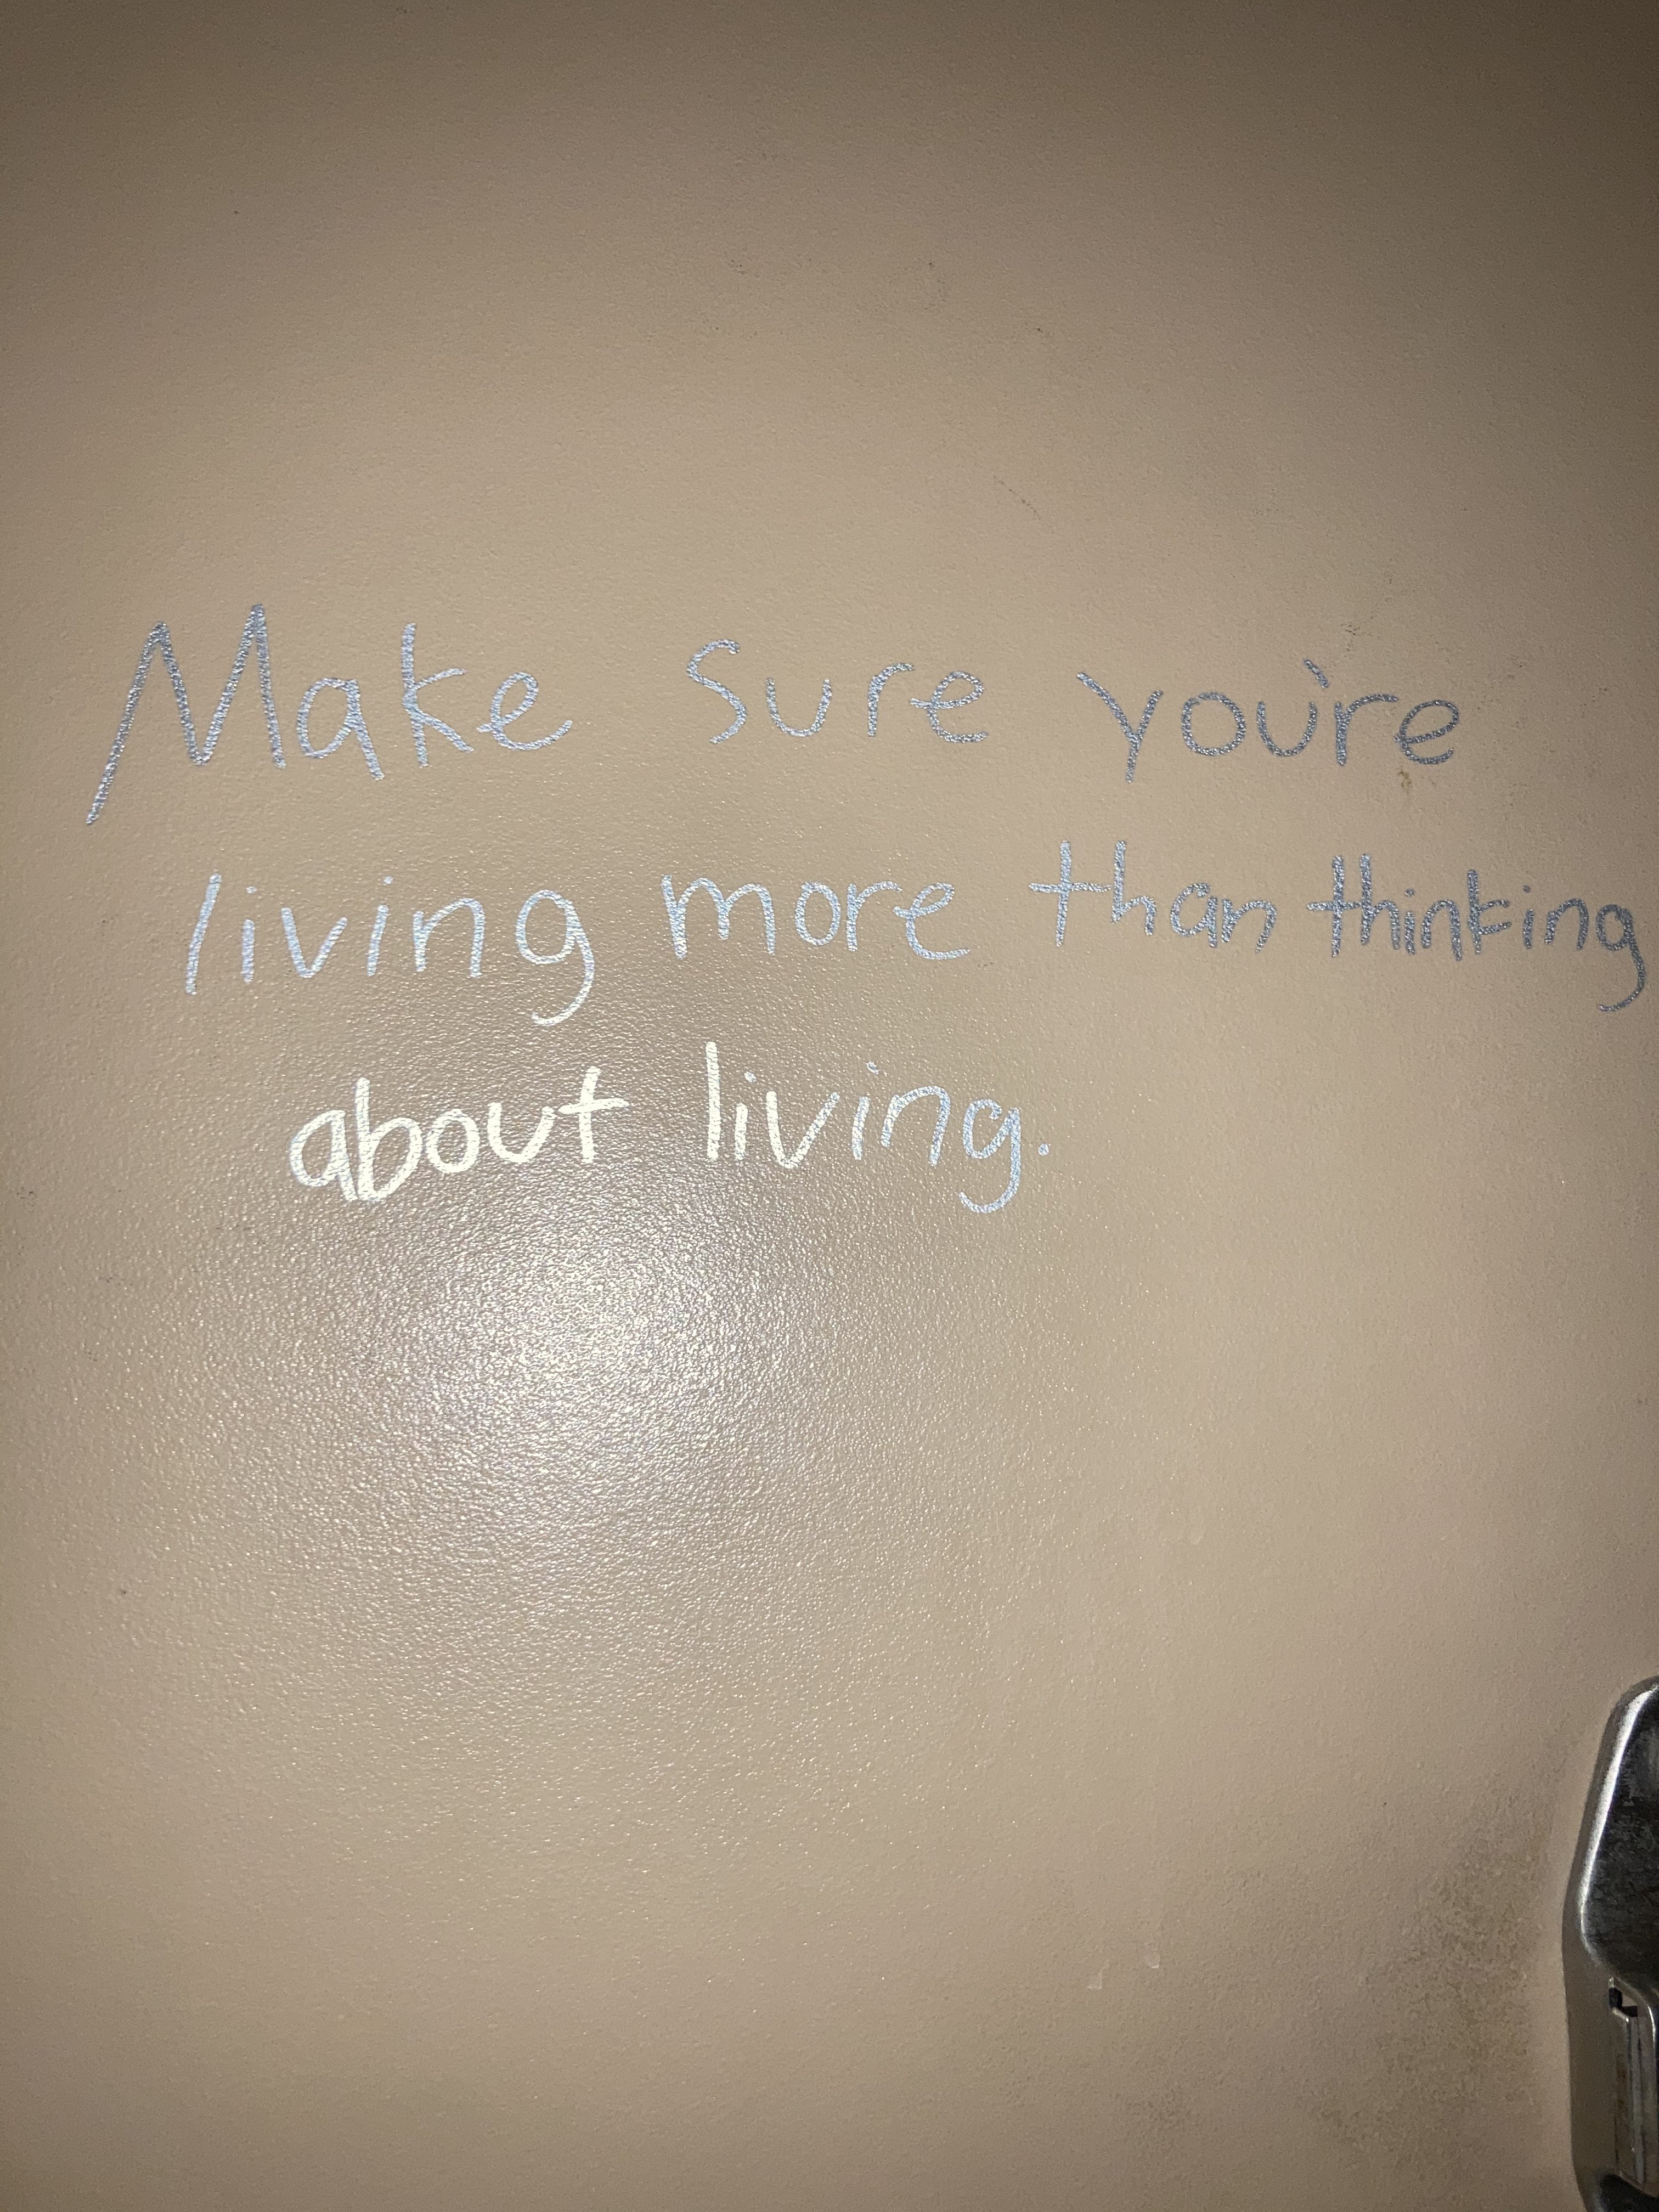 Make sure you're
living more than thinking
about living.